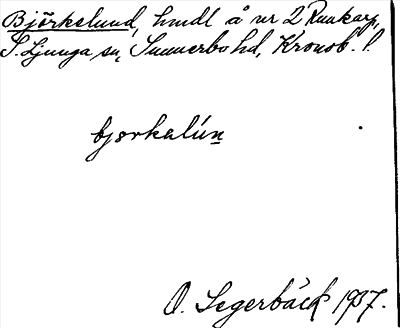 Björkelund, hmdl å nr 2 Runkarp,
S. Ljunga sn, Sunnerbo hd, Kronob. l.
bjørkalún
O. Segerbäck 1937.